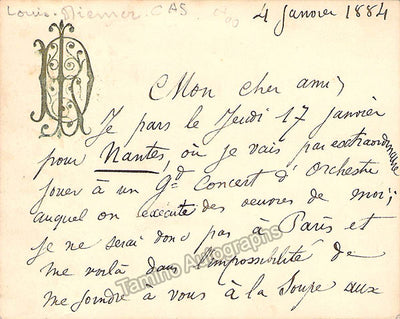 Louis Diemer CAS
4 Janvier 1884
Mon cher ami,
Je pars le Jeudi 17 janvier
pour Nantes, où je vais par extraordinaire
jouer à un Gd Concert d'Orchestre
auquel on exécute des oeuvres de moi;
je ne serai donc pas à Paris et
me voilà dans l'impossibilité de
me joindre à vous à la Soupe aux
Tamino Autographs